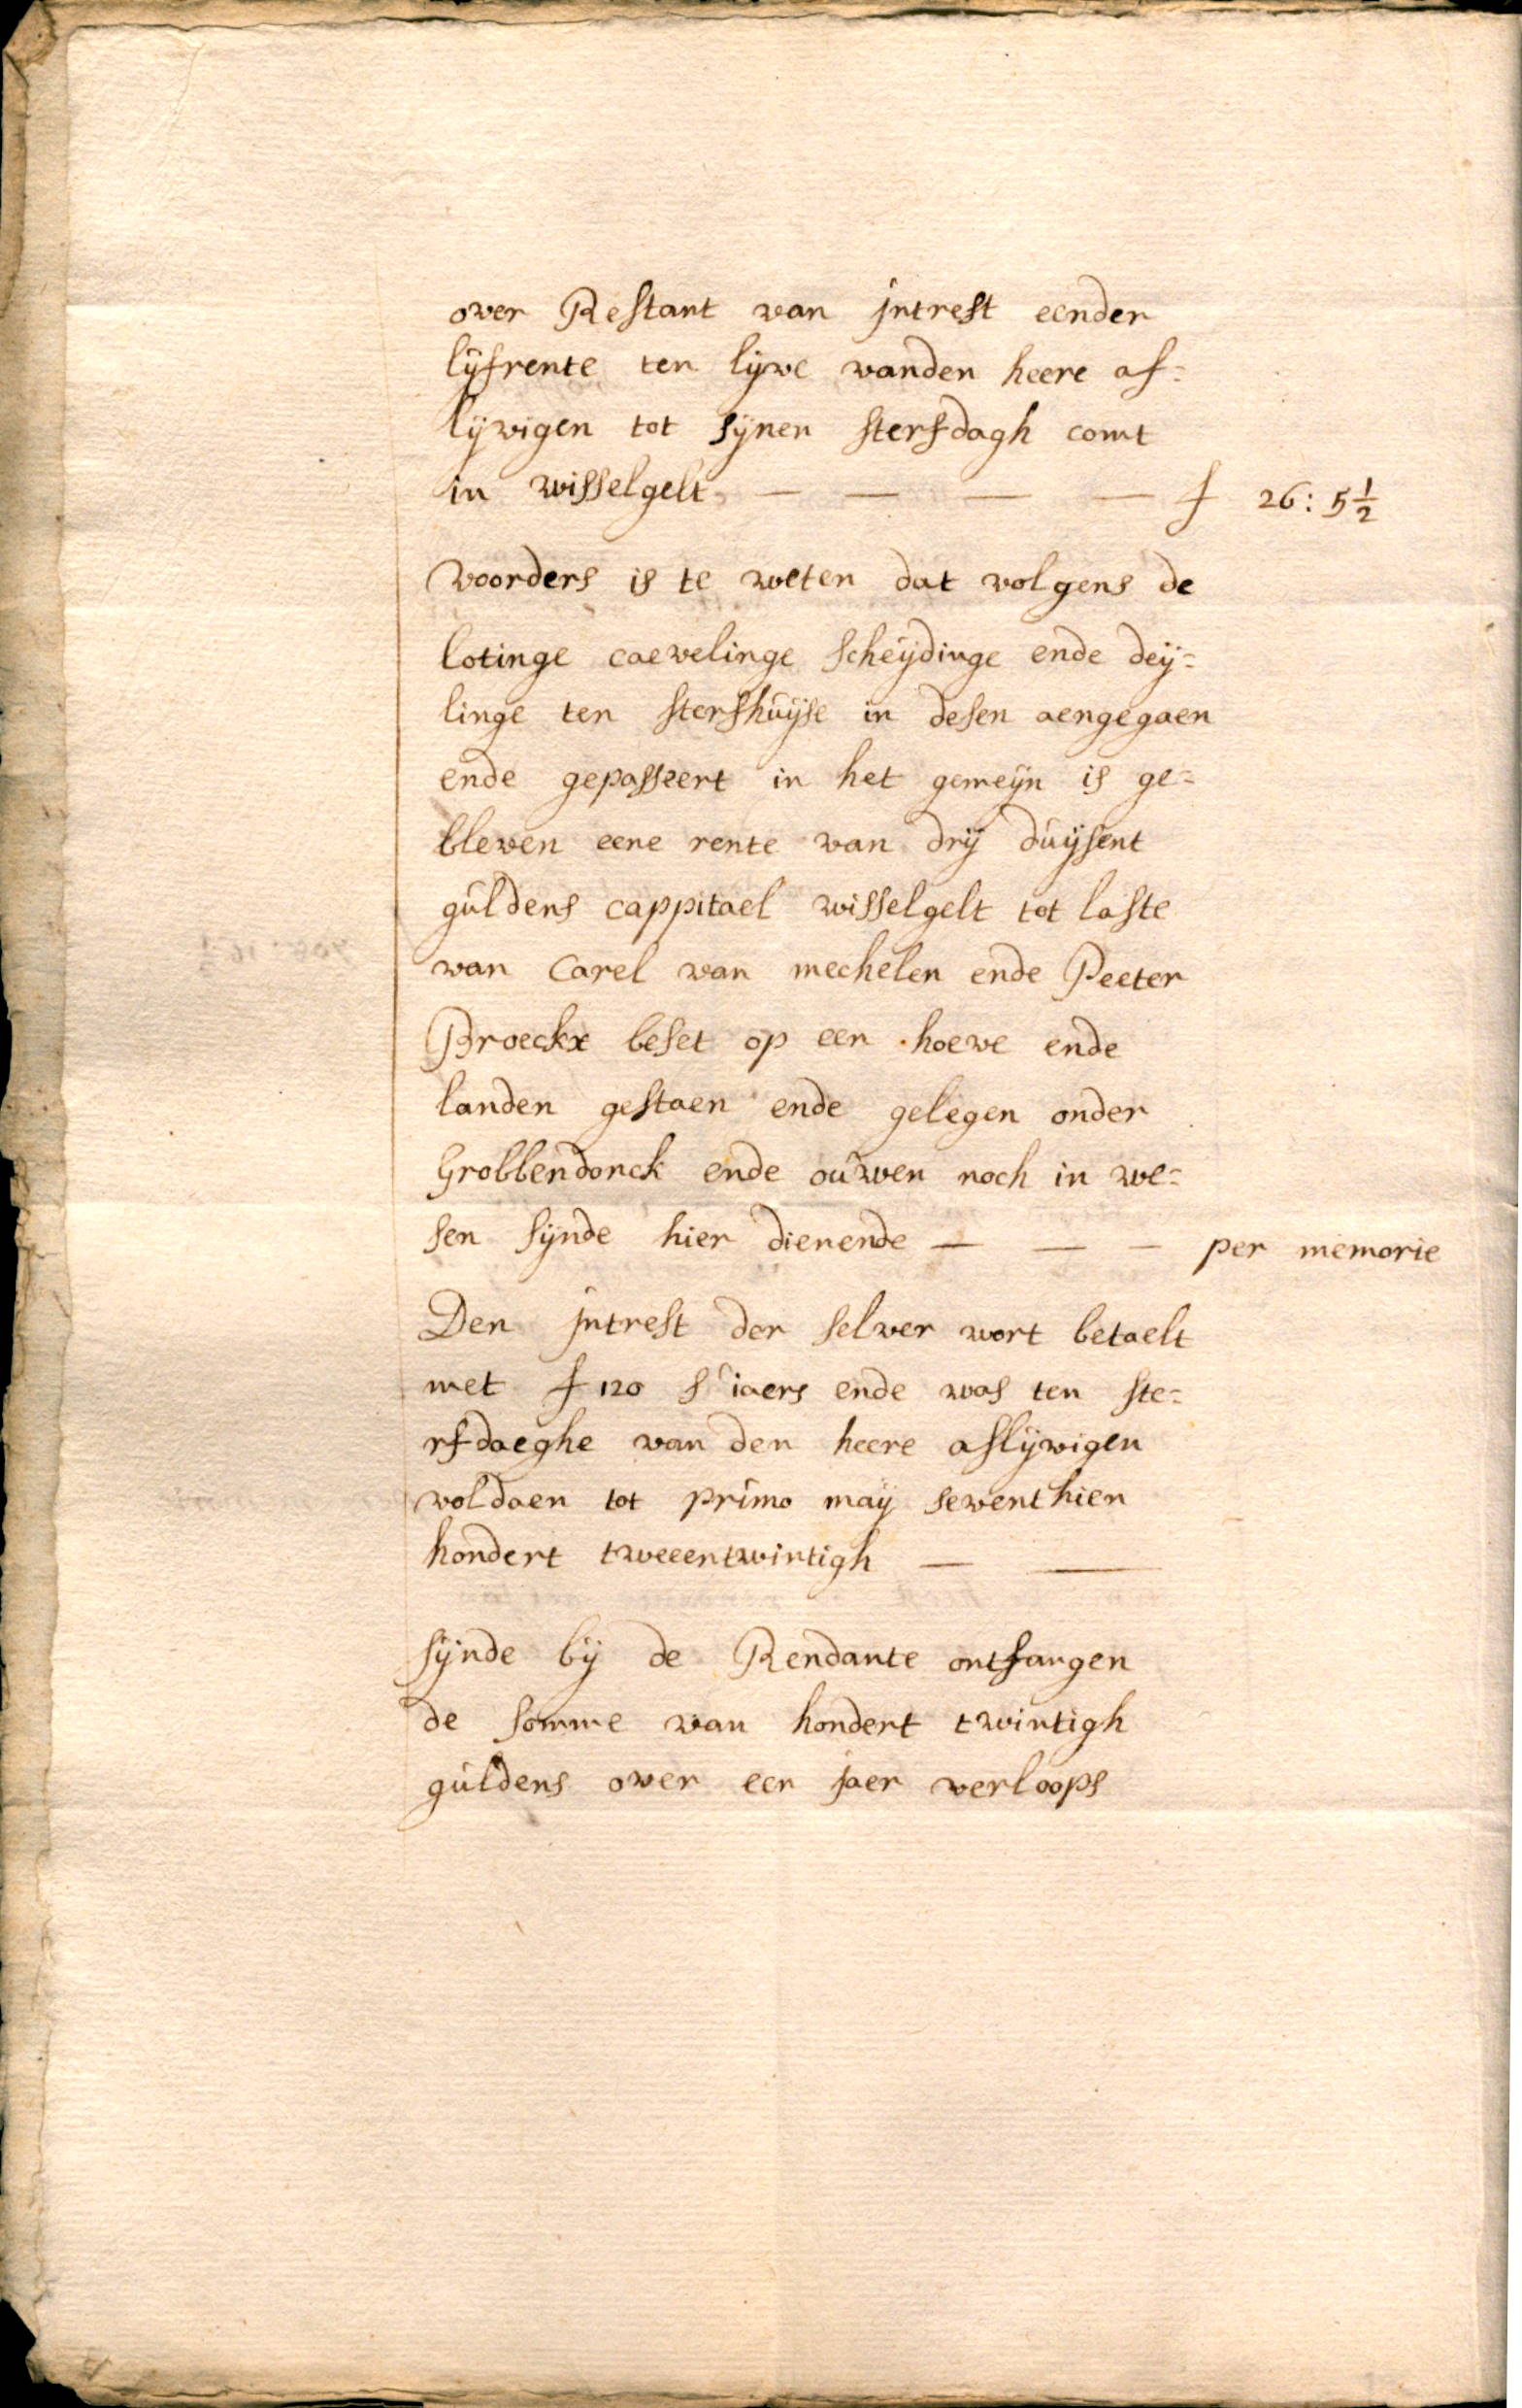 over Restant van jntrest eender
lijfrente ten lijve vanden heere af=
lijvigen tot sijnen sterfdagh comt
in wisselgelt — — — — f 26: 5½
Voorders is te weten dat volgens de
lotinge caevelinge scheijdinge ende deij=
linge ten sterfhuijse in desen aengegaen
ende gepasseert in het gemeijn is ge=
bleven eene rente van drij duijsent
guldens cappitael wisselgelt tot laste
van Carel van mechelen ende Peeter
Broeckx beset op een hoeve ende
landen gestaen ende gelegen onder
Grobbendonck ende ouwen noch in we=
sen sijnde hier dienende — — — per memorie
Den jntrest der selver wort betaelt
met f 120 s'iaers ende was ten ste=
rfdaeghe van den heere aflijvigen
voldaen tot primo maij seventhien
hondert tweeentwintigh — —
sijnde bij de Rendante ontfangen
de somme van hondert twintigh
guldens over een jaer verloops